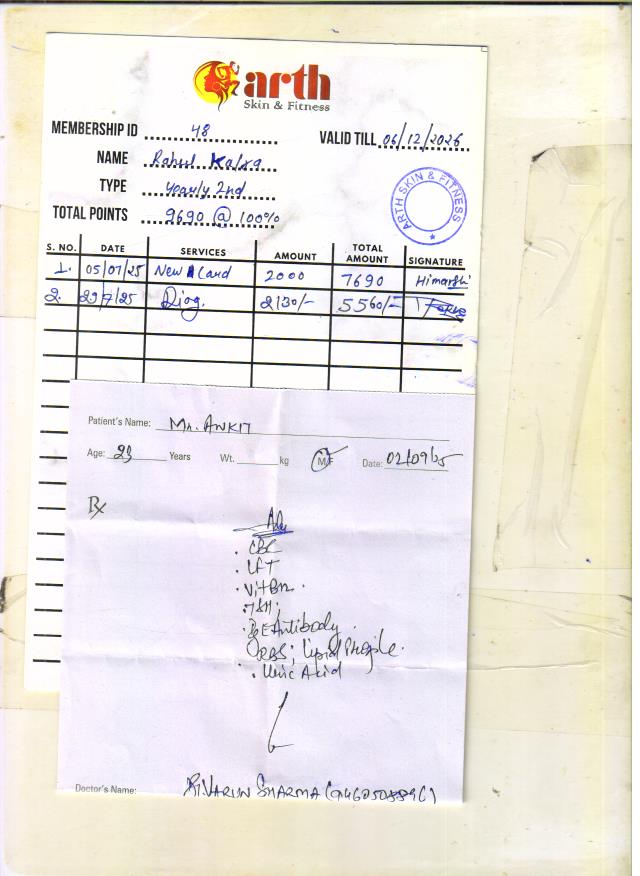 arth
Skin & Fitness
MEMBERSHIP ID 48
VALID TILL 06/12/2026
NAME Rahul Kalra
TYPE Yearly 2nd
TOTAL POINTS 9690 @ 100%
ARTH SKIN & FITNESS
S. NO. DATE SERVICES AMOUNT TOTAL AMOUNT SIGNATURE
1. 05/07/25 New Card 2000 7690 Himanshi
2. 29/7/25 2130/- 5560/-
Patient's Name: Mr. ANKIT
Age: 23 Years Wt. kg M/F Date: 02/09/25
Rx
Adv
. CBC
. LFT
. Vit B12.
. TSH.
. IgE Antibody.
RBS; Lipid Profile.
. Uric Acid
Doctor's Name: Dr. VARUN SHARMA